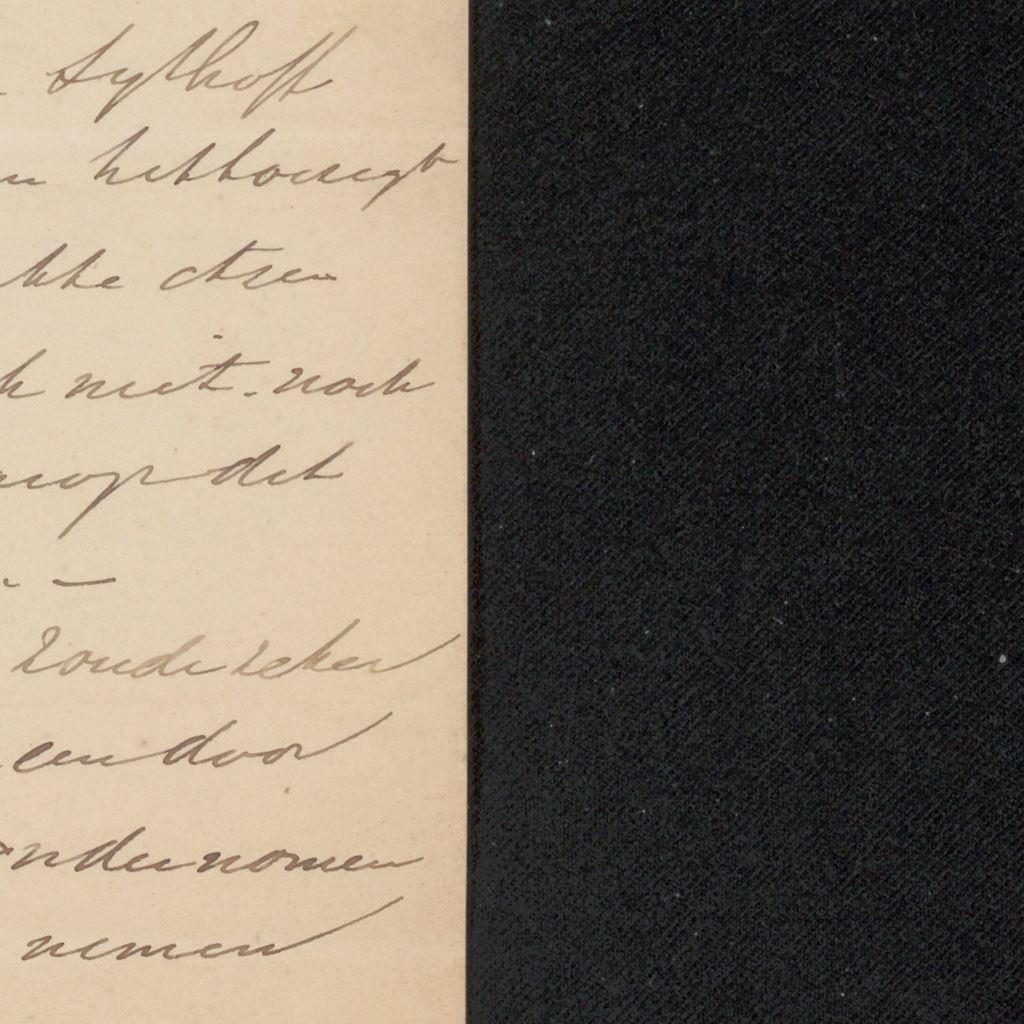 Sythoff
het toezegt
etsen
niet. noch
op dit
—
Zoude zeker
een door
ondernomen
nemen